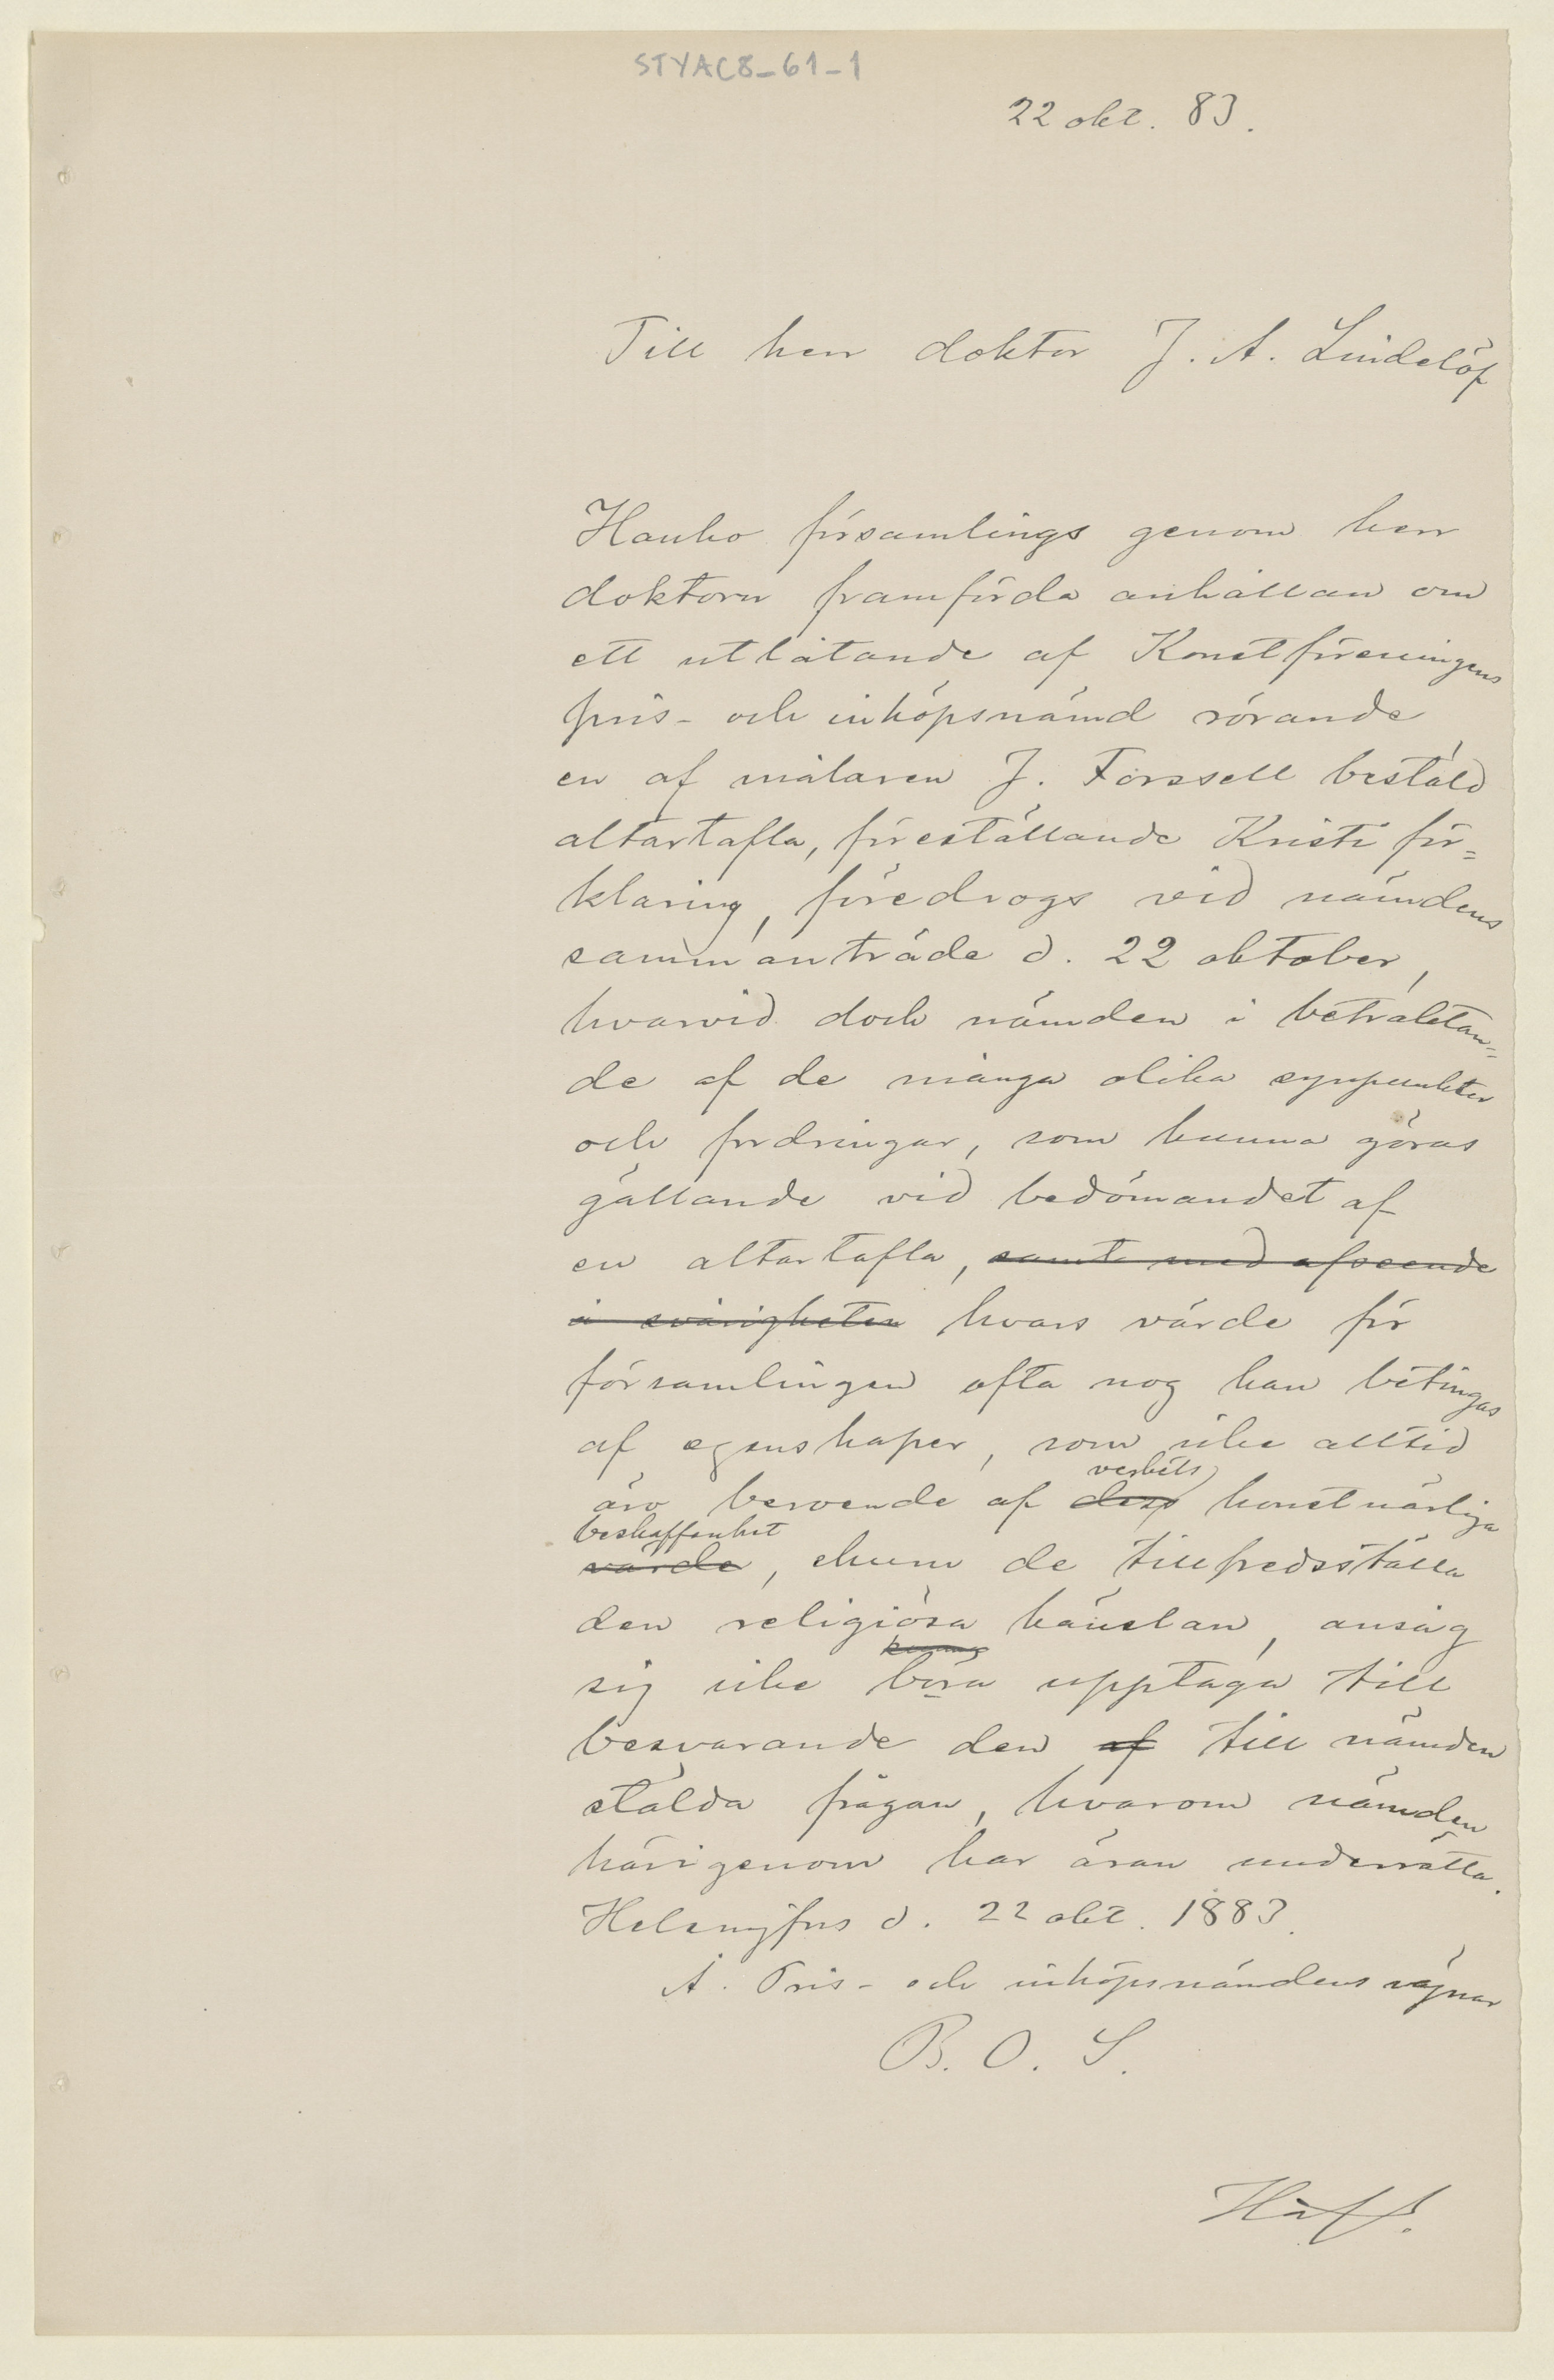 STYAC8_61_1
22 okt. 83.
Till herr doktor J. A. Lindelöf
Hauho församlings genom herr
doktorn framförda anhållan om
ett utlåtande af Konstföreningens
pris- och inköpsnämd rörande
en af målaren J. Forssell bestäld
altartafla, föreställande Kristi för=
klaring, föredrogs vid nämdens
sammanträde d. 22 oktober,
hvarvid doch nämden i betraktan=
de af de många olika synpunkter
och fordringar, som kunna göras
gällande vid bedömandet af
en altartafla, samt med afseende
å svårigheten hvars värde för
församlingen ofta nog kan betingas
af egenskaper, som icke alltid
verkets
äro beroende af dess konstnärliga
beskaffenhet
värde, ehuru de tillfredsställa
den religiösa känslan, ansåg
sig icke böra upptaga till
besvarande den af till nämden
stälda frågan, hvarom nämden
härigenom har äran underrätta.
Helsingfors d. 22 okt. 1883.
Å Pris- och inköpsnämdens vägnar
B. O. S.